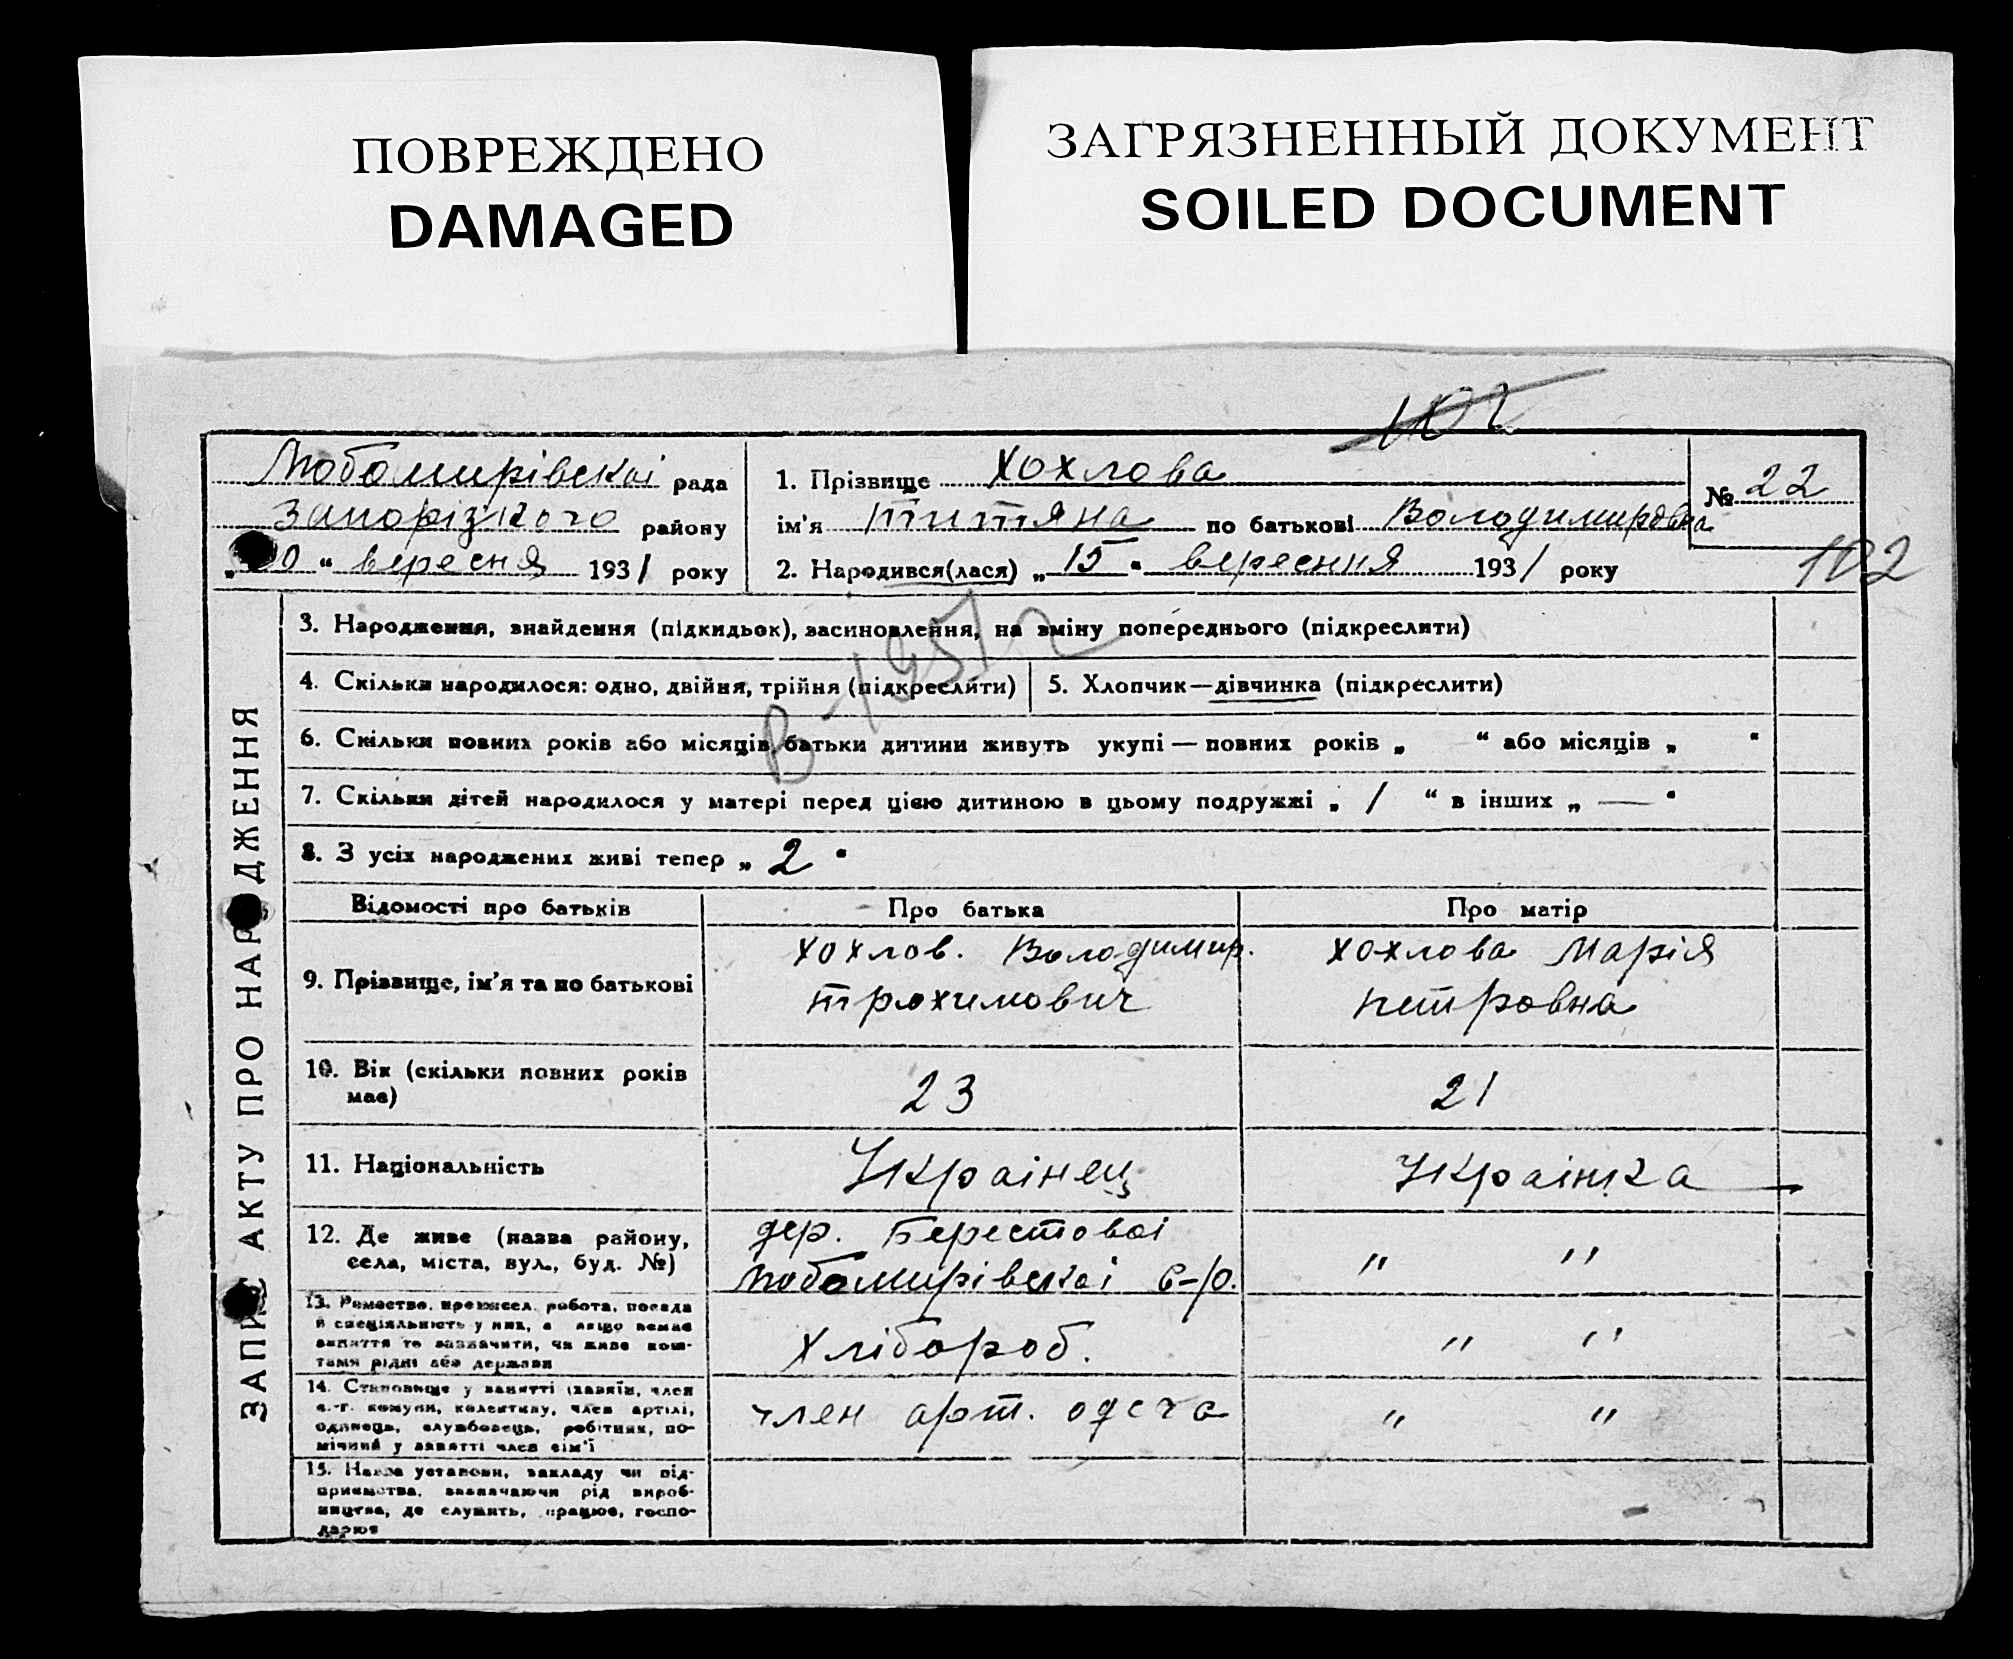 ПОВРЕЖДЕНО
DAMAGED
ЗАГРЯЗНЕННЫЙ ДОКУМЕНТ
SOILED DOCUMENT
102
Любомирівскаі рада
Запорізкого району
„ 0 “ вересня 1931 року
1. Прізвище Хохлова
ім’я Титяна по батькові Володимировна
2. Народився(лася) „ 15 “ вересння 1931 року
№ 22
102
ЗАПИС АКТУ ПРО НАРОДЖЕННЯ
3. Народження, знайдення (підкидьок), засиновлення, на зміну попереднього (підкреслити)
4. Скільки народилося: одно, двійня, трійня (підкреслити)
5. Хлопчик—дівчинка (підкреслити)
В-1951
6. Скільки повних років або місяців батьки дитини живуть укупі — повних років „ “ або місяців „ “
7. Скільки дітей народилося у матері перед цією дитиною в цьому подружжі „ / “ в інших „ — “
8. З усіх народжених живі тепер „ 2 “
Відомості про батьків
Про батька
Про матір
9. Прізвище, ім’я та по батькові
Хохлов. Володимир.
трохимович
Хохлова Марія
петровна
10. Вік (скільки повних років
має)
23
21
11. Національність
Украінец
Украінка
12. Де живе (назва району,
села, міста, вул., буд. №)
дер. Берестоваі
Любомирівскаі с-р.
" "
13. Ремество, промисел, робота, посада
й спеціяльність у них, а якщо немає
заняття то зазначити, чи живе кош-
тами рідні або держави
Хлібороб.
" "
14. Становище у занятті (хазяїн, член
с.-г. комуни, колективу, член артілі,
одинець, службовець, робітник, по-
мічний у занятті член сім’ї
член арт.
" "
15. Назва установи, закладу чи під-
приємства, зазначаючи рід вироб-
ництва, де служить, працює, госпо-
дарює